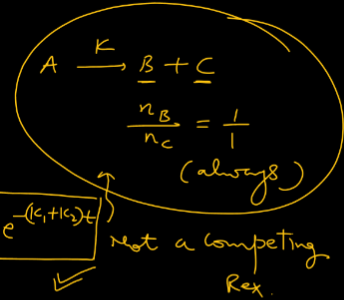 A —K→ B + C
n_B/n_C = 1/1
(always)
e^-(K₁+K₂)t )
Not a competing
Rex.